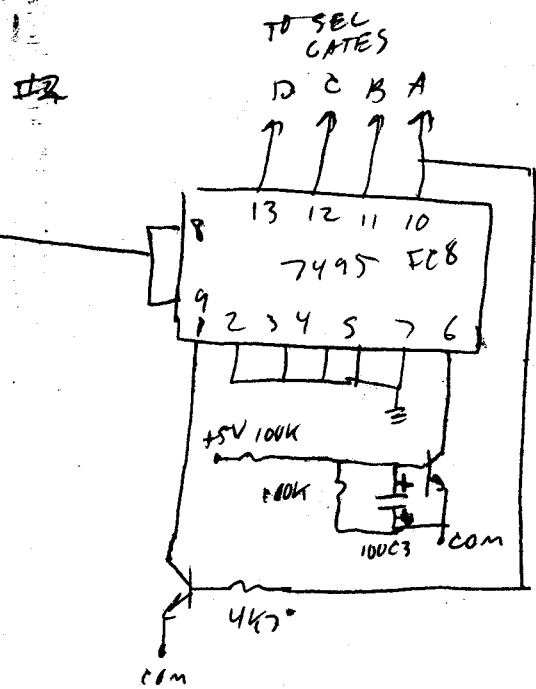 TO SEL
GATES
D C B A
13 12 11 10
8
7495 IC8
9
1 2 3 4 5 7 6
+5V 100K
100K
10UC3
COM
4K7
COM